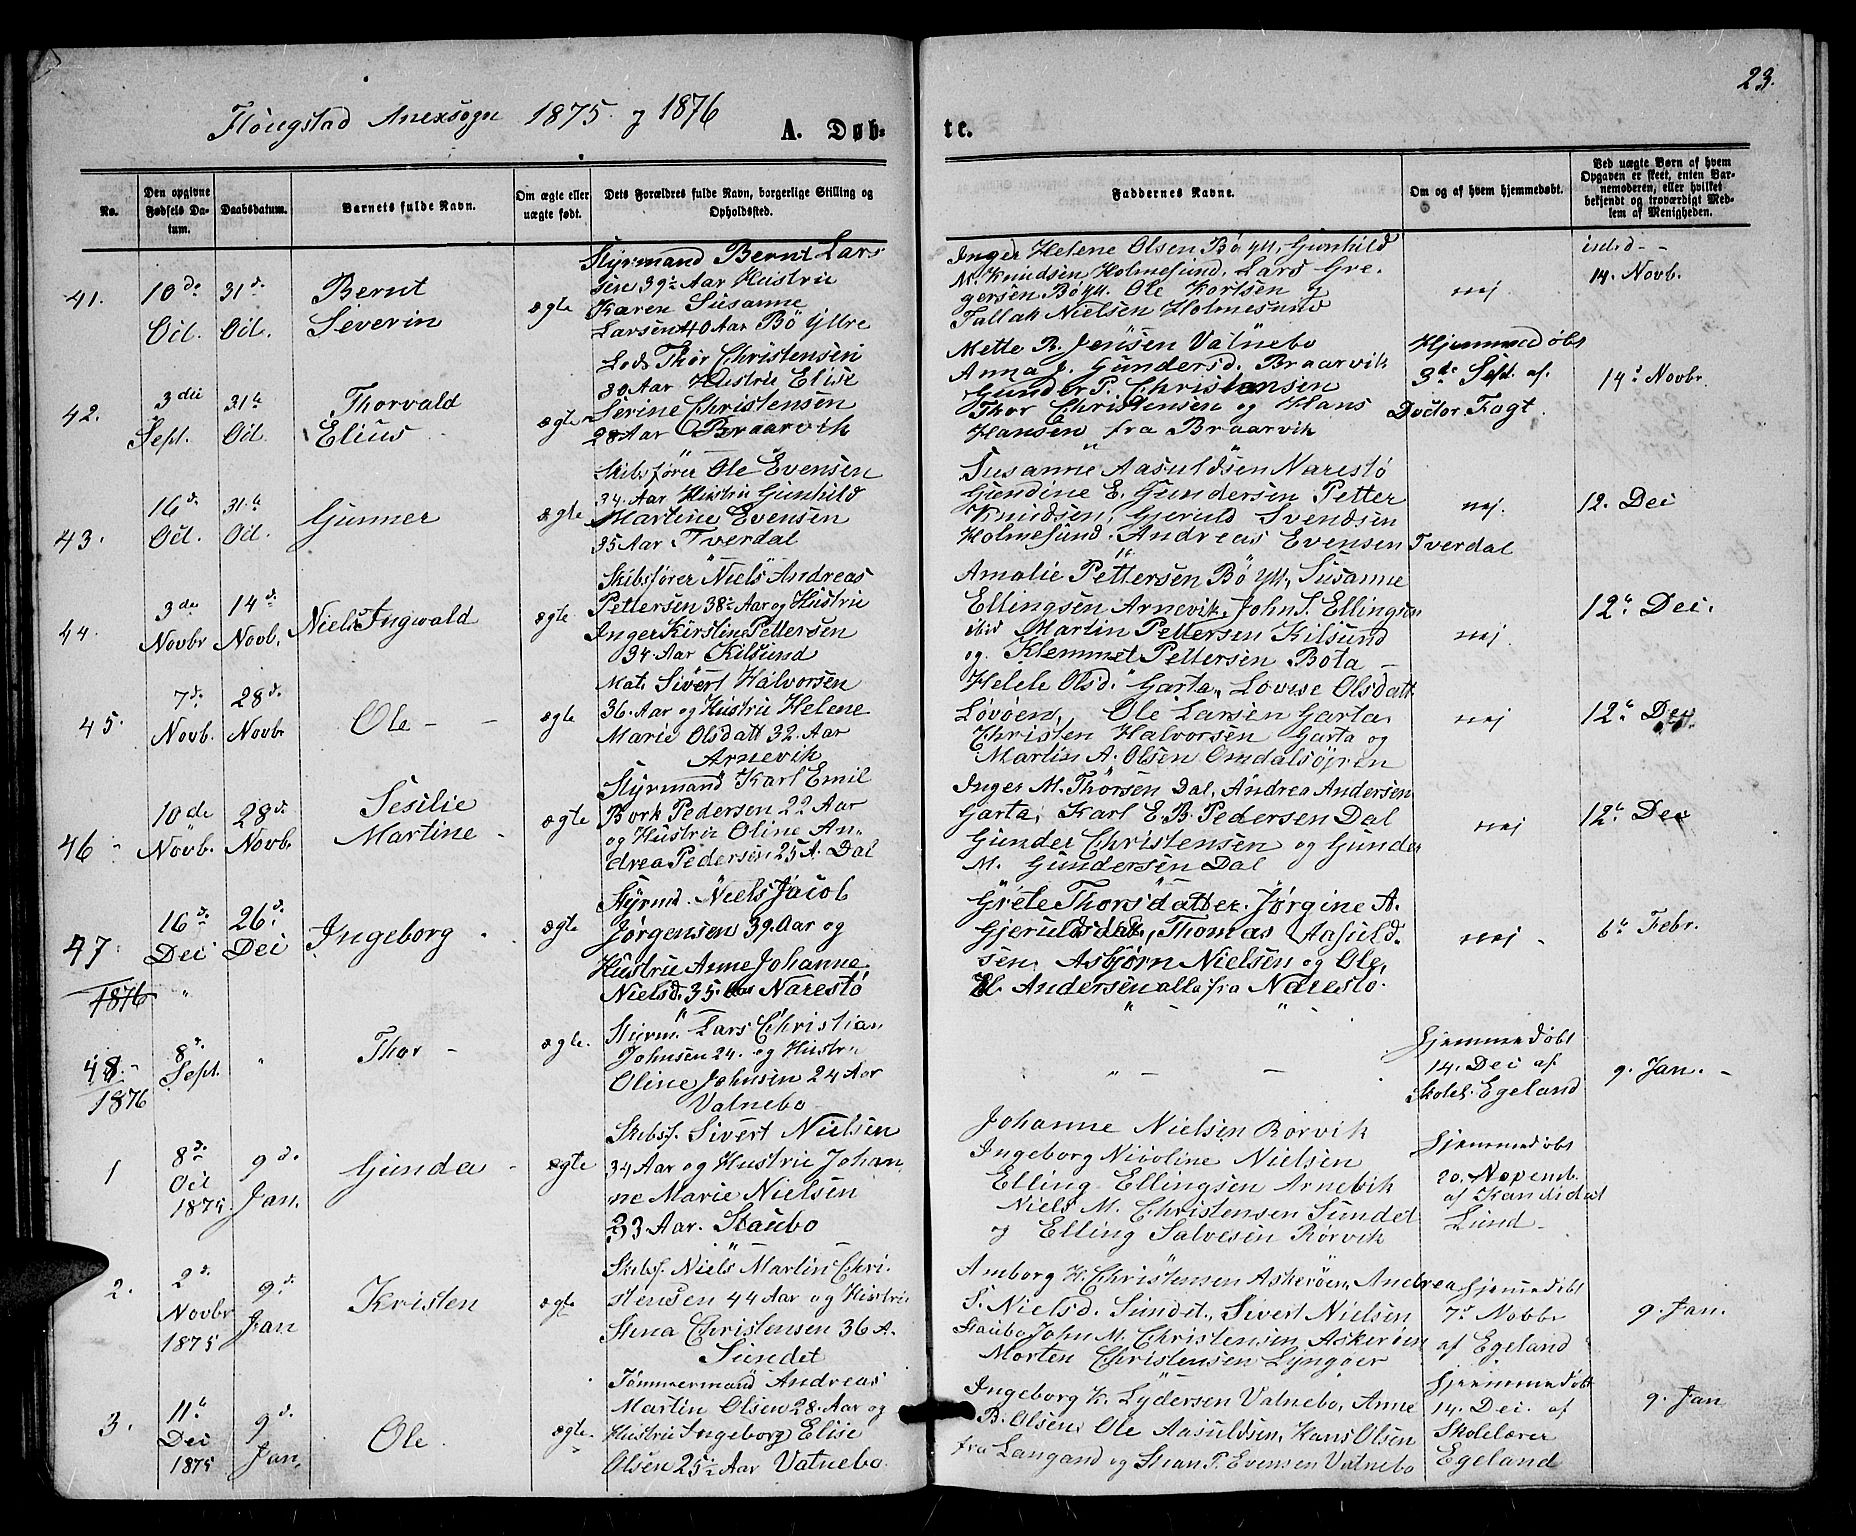 23.
Flöugstad Anexsogn 1875 og 1876
A. Døb-
te.
No.
Den opgivne Fødsels Da-tum.
Daabsdatum.
Barnets fulde Navn.
Om ægte eller uægte født.
Dets Forældres fulde Navn, borgerlige Stilling og Opholdssted.
Faddernes Navne.
Om og af hvem hjemmedøbt.
Ved uægte Børn af hvem
Opgaven er skeet, enten Bar-
nemoderen, eller hvilket
bekjendt og troværdigt Med-
lem af Menigheden.
41.
10de
Oct.
31d.
Oct.
Bernt
Severin
ægte
Styrmand Bernt Lars
sen 39½ Aar Hustru
Karen Susanne
Larsen 40 Aar Bö Yttre
Inger Helene Olsen Bö Ytt, Gunhild
M. Knudsen Holmesund, Lars Gre-
gersen Bö Ytt. Ole Karlsen og
Tallak Nielsen Holmesund
nej
14. Novb.
42.
3die
Sept.
31te
Oct.
Thorvald
Elius
ægte
Lods Thor Christensen
30 Aar Hustru Elise
Serine Christensen
28 Aar Braarvik
Mette B. Jensen Valnebo
Anna J. Gundersd. Braarvik
Gunder P. Christensen
Thor Christensen og Hans
Hansen fra Braarvik
Hjemmedøbt
3de Sept. af.
Doctor Fagt.
14d Novbr
43.
16d.
Oct.
31te
Oct.
Gunner
ægte
Skibsfører Ole Evensen
34. Aar Hustru Gunhild
Martine Evensen
35 Aar. Tverdal
Susanne Aasuldsen Narestö
Gundine E. Gundersen Petter
Knudsen, Gjeruld Svendsen
Holmesund. Andreas Evensen Tverdal
nej.
12. Dec
44.
3de
Novbr
14d.
Novb.
Niels Ingwald
ægte.
Skibsfører Niels Andreas
Pettersen 38½ Aar og Hustru
Inger Kirstine Pettersen
34 Aar Kilsund
Amalie Pettersen Bö Ytt, Susanne
Ellingsen Arnevik, John S. Ellingsen
ibid Martin Pettersen Kilsund
og Klemmet Pettersen Bota -
nej
12te Dec.
45.
7d.
Novb.
28d.
Novbr
Ole - -
ægte
Mat. Sivert Halvorsen
36. Aar og Hustru Helene
Marie Olsdatt 32. Aar
Arnevik
Helele Olsd. Garta, Lovise Olsdatt
Lövöen, Ole Larsen Garta,
Christen Halvorsen Garta og
Martin A. Olsen Omdalsöjren
nej
12te Dec.
46 -
10de
Novb.
28d.
Novbr.
Sesilie
Martine -
ægte
Styrmand Karl Emil
Bork Pedersen 22 Aar
og Hustru Oline An-
drea Pedersen 25 A. Dal
Inger M. Thorsen Dal, Andrea Andersen
Garta, Karl E. B. Pedersen Dal
Gunder Christensen og Gunder
M. Gundersen Dal
nej
12te Dec
47.
16d.
Dec
26d.
Dec
Ingeborg -
ægte
Styrmd. Niels Jacob
Jørgensen 39. Aar og
Hustru Anne Johanne
Nielsd. 35. Aar Narestö
Grete Thorsdatter. Jørgine A.
Gjeruldsdatt, Thomas Aasuld-
sen, Asbjørn Nielsen og Ole,
H. Andersen alle fra Narestö.
nej -
6te Febr.
1876
48. -
8d.
Sept.
"
Thor -
ægte.
Styrm. Lars Christian
Johnsen 24. og Hustru
Oline Johnsen 24 Aar
Valnebo
" - -
Hjemmedøbt
14. Dec af
Skolel. Egeland
9. Jan. -
1876
1
8d.
Oct
1875
9d.
Jan.
Gunda -
ægte
Skibsf. Sivert Nielsen
34 Aar og Hustru Johan
ne Marie Nielsen
33 Aar. Staubo
Johanne Nielsen Borvik
Ingeborg Nicoline Nielsen
Elling Ellingsen Arnevik
Niels M. Christensen Sundet
og Elling Salvesen Rörvik
Hjemmedøbt
20. Novemb.
af Kandidat
Lund -
2.
2d.
Novbr
1875
9d.
Jan
Kristen
ægte
Skibsf. Niels Martin Chri-
stensen 44 Aar og Hustru
Stina Christensen 36 A.
Sundet
Amborg K. Christensen Askeröen, Andrea
S. Nielsd. Sundet, Sivert Nielsen
Staubo John M. Christensen Askeröen
Morten Christensen Lyngöer
Hjemmedøbt
7d Novbr
af Egeland
9. Jan.
3.
11te
Dec
1875
9d.
Jan.
Ole.
ægte.
Tömmermand Andreas
Martin Olsen 28. Aar og
Hustru Ingeborg Elise
Olsen 25½ Aar Valnebo.
Ingeborg K. Lydersen Valnebo, Anne
B. Olsen, Ole Aasuldsen, Hans Olsen
fra Langand og Stean P. Evensen Valnebo
Hjemmedøbt
14. Dec. af
Skolelærer
Egeland
9. Jan